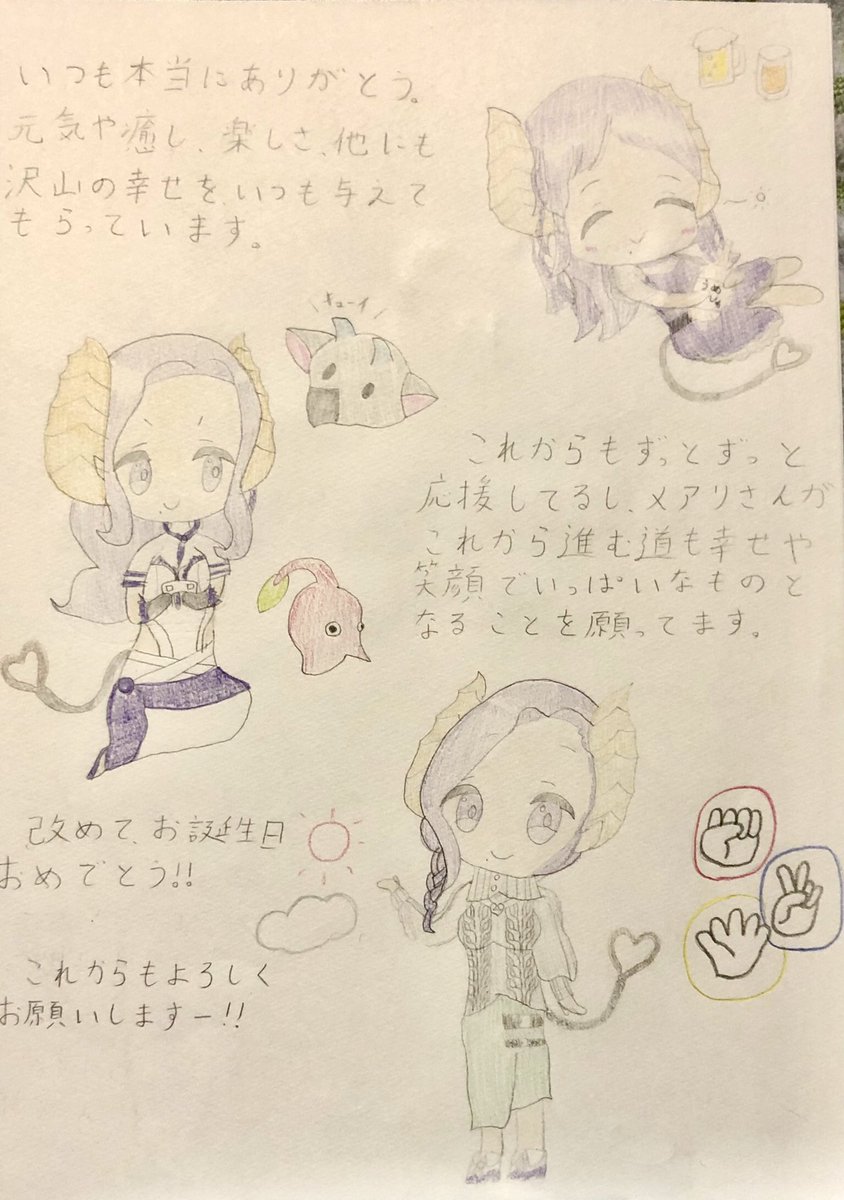 いつも本当にありがとう。
元気や癒し、楽しさ、他にも
沢山の幸せを、いつも与えて
もらっています。
キューイ
うめしゅ
これからもずっとずっと
応援してるし、メアリさんが
これから進む道も幸せや
笑顔でいっぱいなものと
なることを願ってます。
改めて、お誕生日
おめでとう!!
これからもよろしく
お願いしますー!!